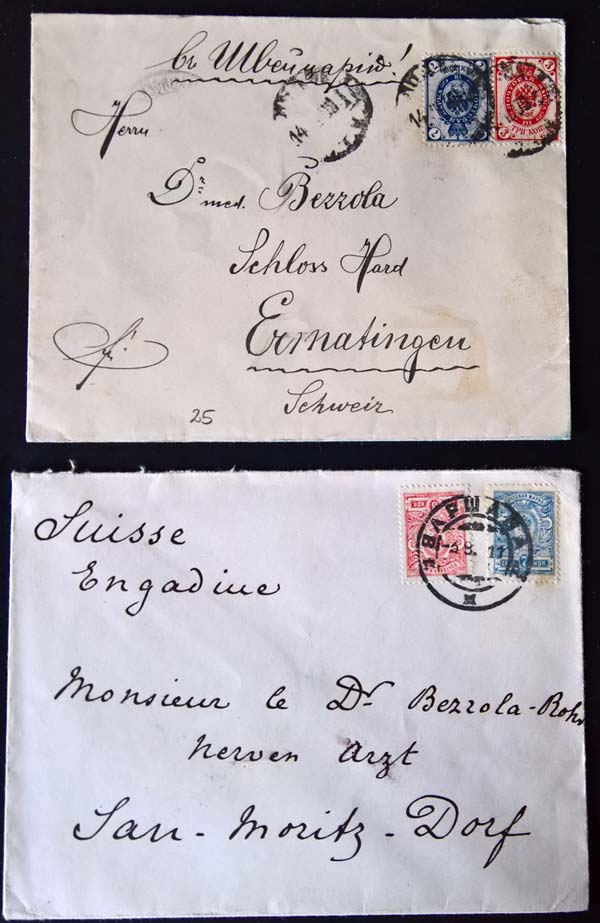 въ Швейцарію!
Herrn
Dr. med. Bezzola
Schloss Hard
Ermatingen
Schweiz
25
7
3
ТРИ КОП.
14
Suisse
Engadine
ВАРШАВА
8. 11
Monsieur le Dr Bezzola-Rohr
Nerven Arzt
San-Moritz-Dorf